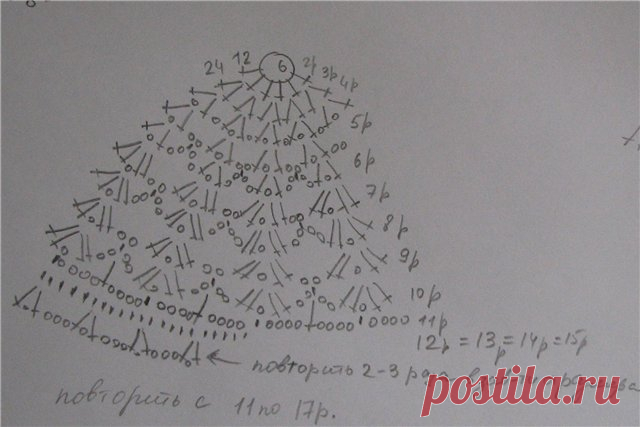 24 12 6 2р 3р 4р
5р
6р
7р
8р
9р
10р
11р
12р = 13р = 14р = 15р
повторить 2-3 раза
повторить с 11 по 17р.
postila.ru